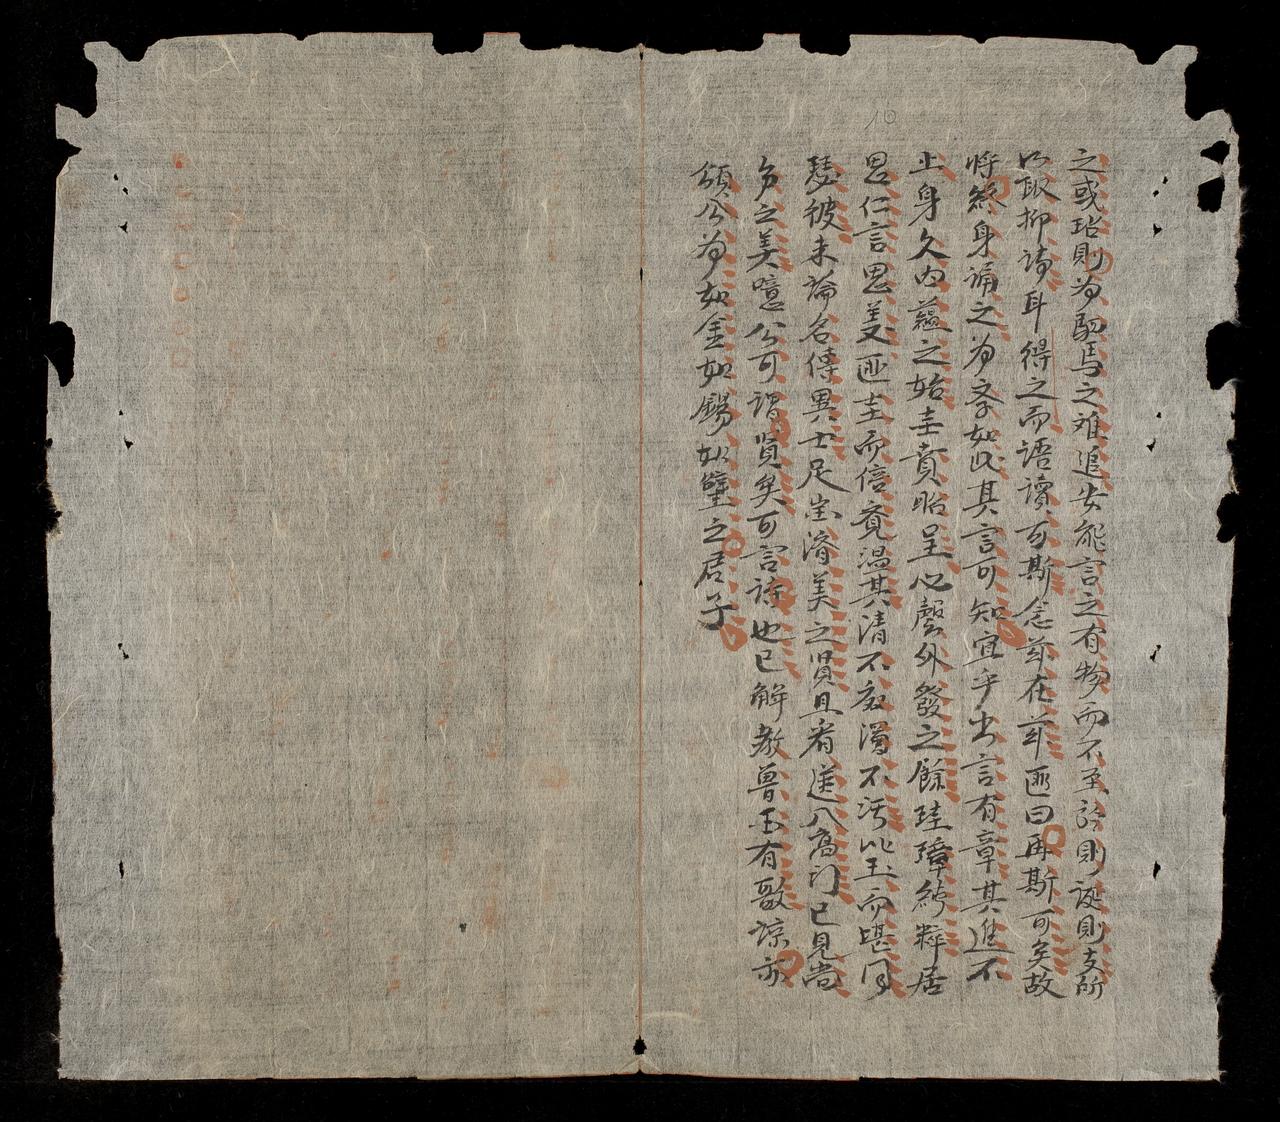 10
之或玷則為駟馬之难追安能言之有物而不至於則誣則支所
以取抑詩耳得之而語讀百斯念茲在茲匪曰再斯可矣故
將終身誦之為孝如此其言可知宜乎出言有章其進不
止身久内蘊之始圭賁昭呈心聲外發之餘珪璋綺粹居
思仁言思義匪圭而信寬温其清不激濁不污比玉而堪同
瑟彼未論名傳異士足密濟美之贤且看進八高门已見尚
方之美噫公可謂贤矣可言詩也已解教曽玉有感諒亦
頌公為如金如錫如璧之君子